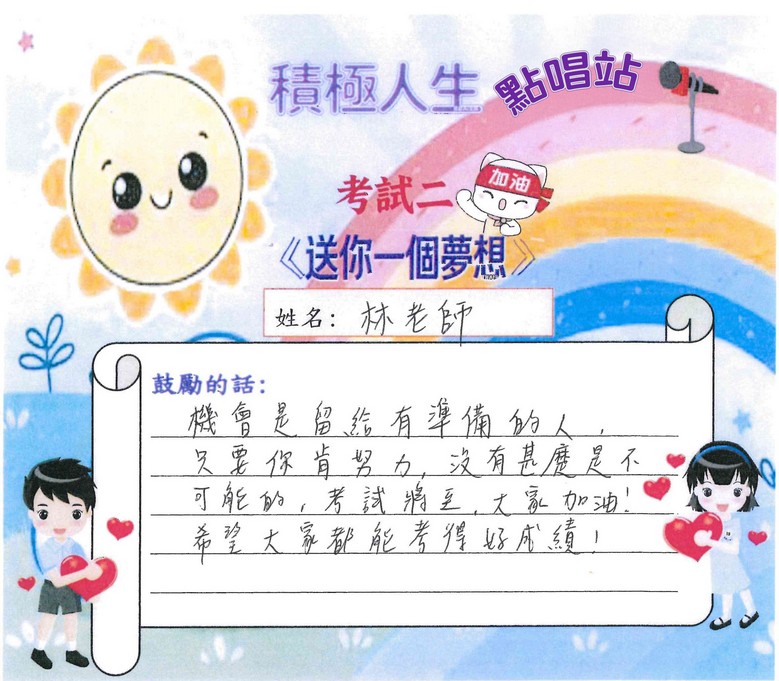 積極人生 點唱站
考試二 加油
《送你一個夢想》
姓名: 林老師
鼓勵的話:
機會是留給有準備的人,
只要你肯努力,沒有甚麼是不
可能的,考試將至,大家加油!
希望大家都能考得好成績!